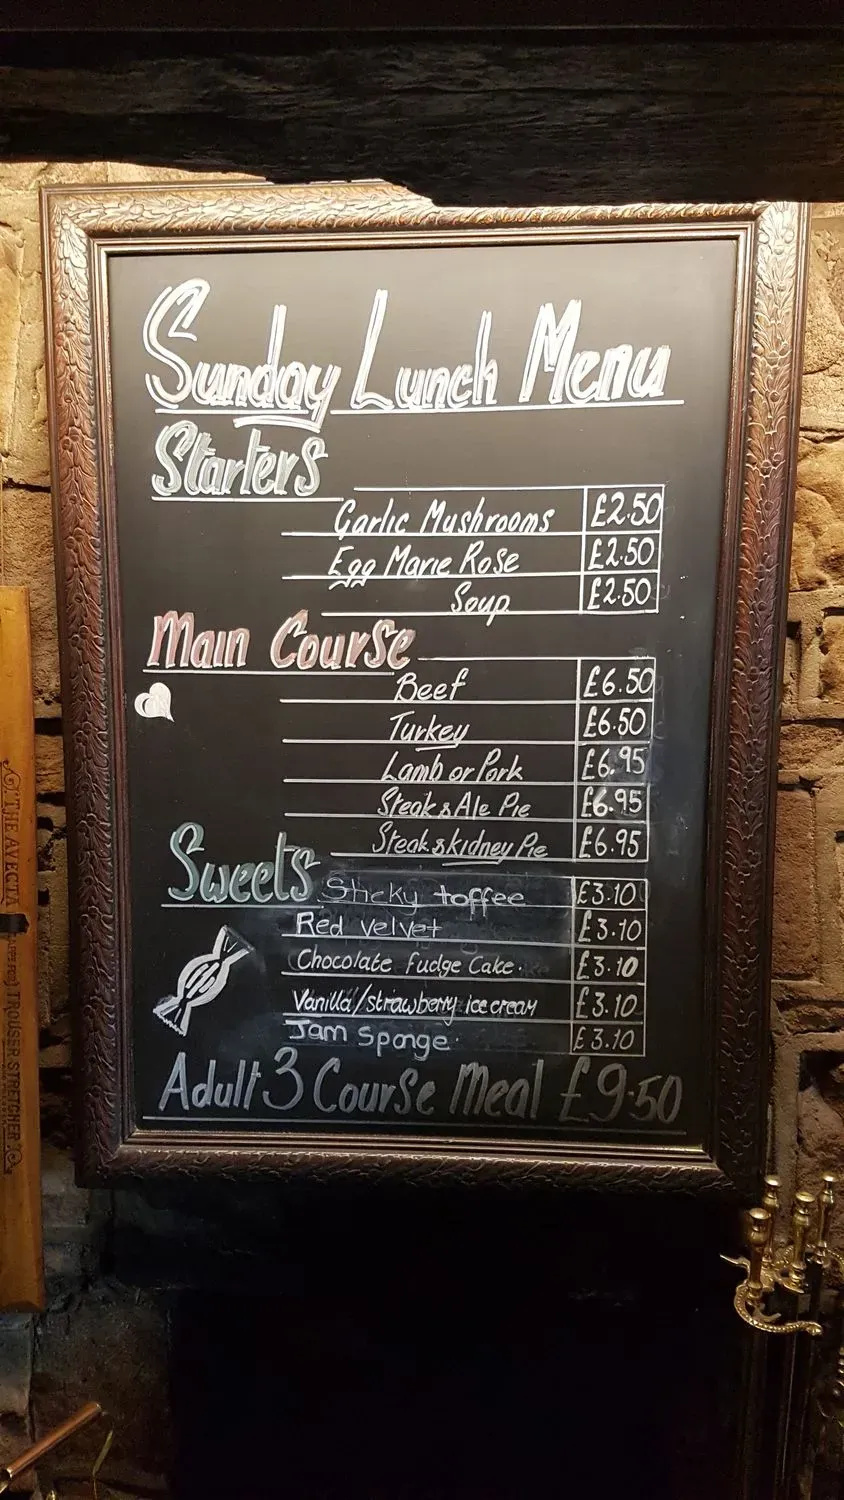 Sunday Lunch Menu
Starters
Garlic Mushrooms £2.50
Egg Marie Rose £2.50
Soup £2.50
Main Course
Beef £6.50
Turkey £6.50
Lamb or Pork £6.95
Steak & Ale Pie £6.95
Steak & kidney Pie £6.95
Sweets Sticky toffee £3.10
Red velvet £3.10
Chocolate fudge Cake. £3.10
Vanilla/strawberry ice cream £3.10
Jam Sponge. £3.10
Adult 3 Course Meal £9.50
THE AVECTA
TROUSER STRETCHER